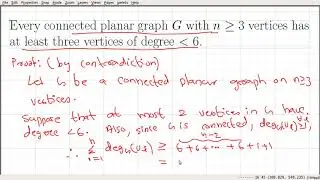 Every connected planar graph G with n ≥ 3 vertices has
at least three vertices of degree < 6.
Proof: (by contradiction)
Let G be a connected planar graph on n≥3
vertices.
Suppose that at most 2 vertices in G have
degree < 6. Also, since G is connected, deg(v_i) ≥ 1
n-2
∴ n Σ i=1 deg_G(v_i) ≥ 6+6+...+6+1+1
=